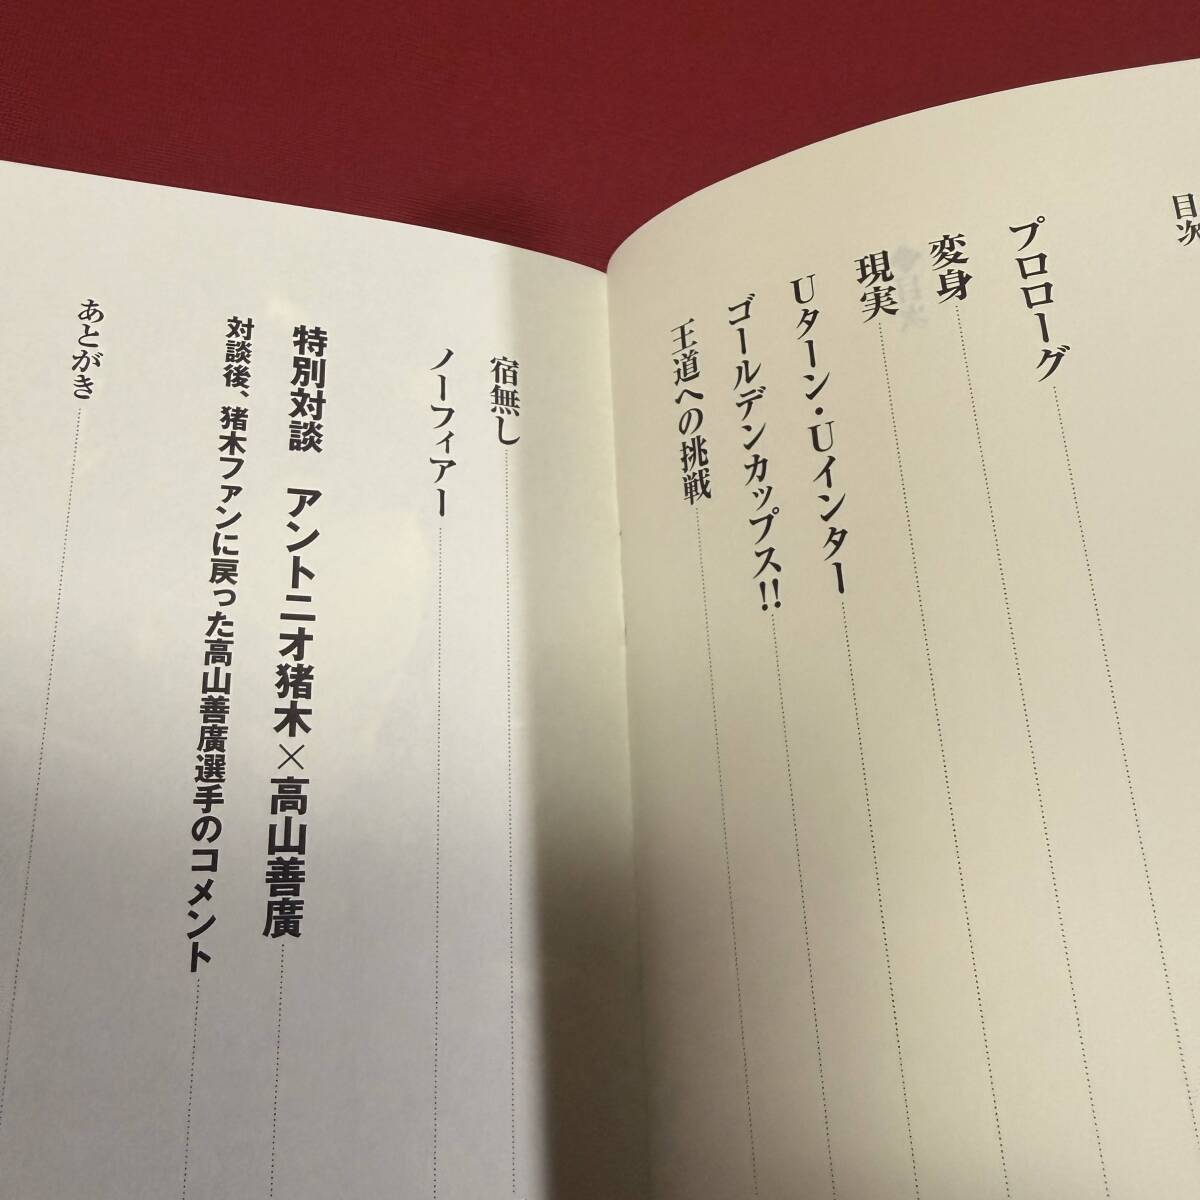 目次
プロローグ
変身
現実
Uターン・Uインター
ゴールデンカップス!!
王道への挑戦
宿無し
ノーフィアー
特別対談　アントニオ猪木×高山善廣
対談後、猪木ファンに戻った高山善廣選手のコメント
あとがき